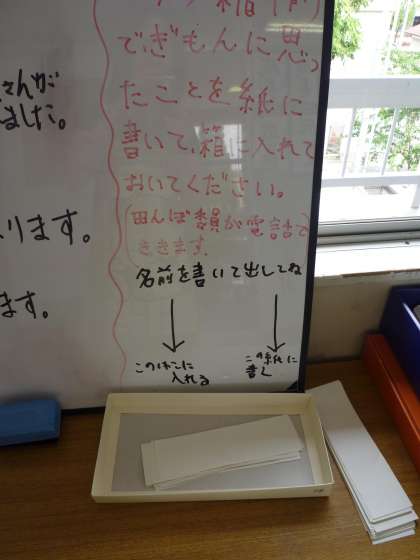 さんが
ました。
ります。
ます。
でぎもんに思っ
たことを紙に
書いて、箱に入れて
おいてください。
(田んぼ委員が電話で
ききます。
名前を書いて出してね
このはこに
入れる
この紙に
書く